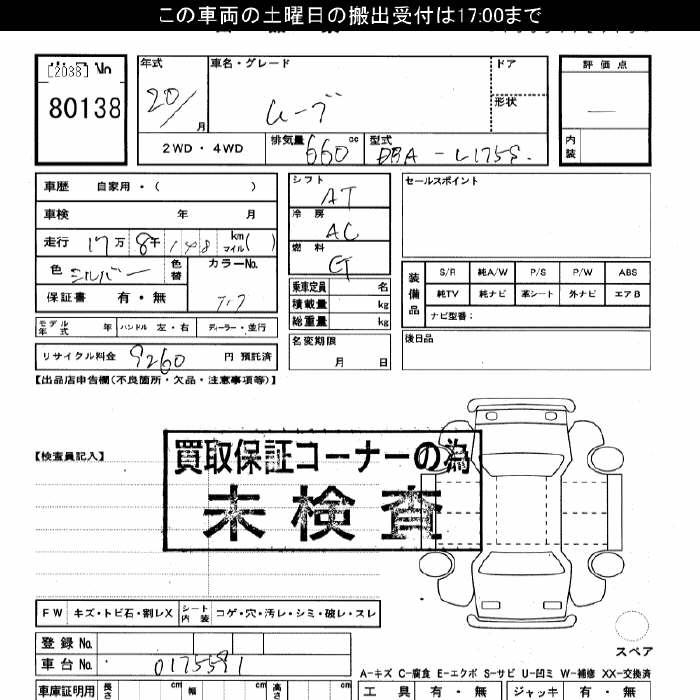 この車両の土曜日の搬出受付は17:00まで
[2038] No
80138
年式 20/ 月
車名・グレード ムーブ
ドア
形状
評価点
内装
2WD・4WD
排気量 660 cc
型式 DBA-L175S.
車歴 自家用・( )
車検 年 月
走行 17万 8千 148 km マイル( )
色 シルバー 色替 カラーNo.
保証書 有・無
モデル年式 年 ハンドル 左・右 ディーラー・並行
リサイクル料金 9260 円 預託済
シフト AT
冷房 AC
燃料 G
乗車定員 名
積載量 kg
総重量 kg
名変期限 月 日
セールスポイント
装備品
S/R 純A/W P/S P/W ABS
純TV 純ナビ 革シート 外ナビ エアB
ナビ型番:
後日品
【出品店申告欄(不良箇所・欠品・注意事項等)】
【検査員記入】
買取保証コーナーの為
未検査
FW キズ・トビ石・割レX シート内装 コゲ・穴・汚レ・シミ・破レ・スレ
登録 No.
車台 No. 0175591
スペア
A-キズ C-腐食 E-エクボ S-サビ U-凹ミ W-補修 XX-交換済
車庫証明用 長さ cm 幅 cm 高さ cm
工具 有・無 ジャッキ 有・無